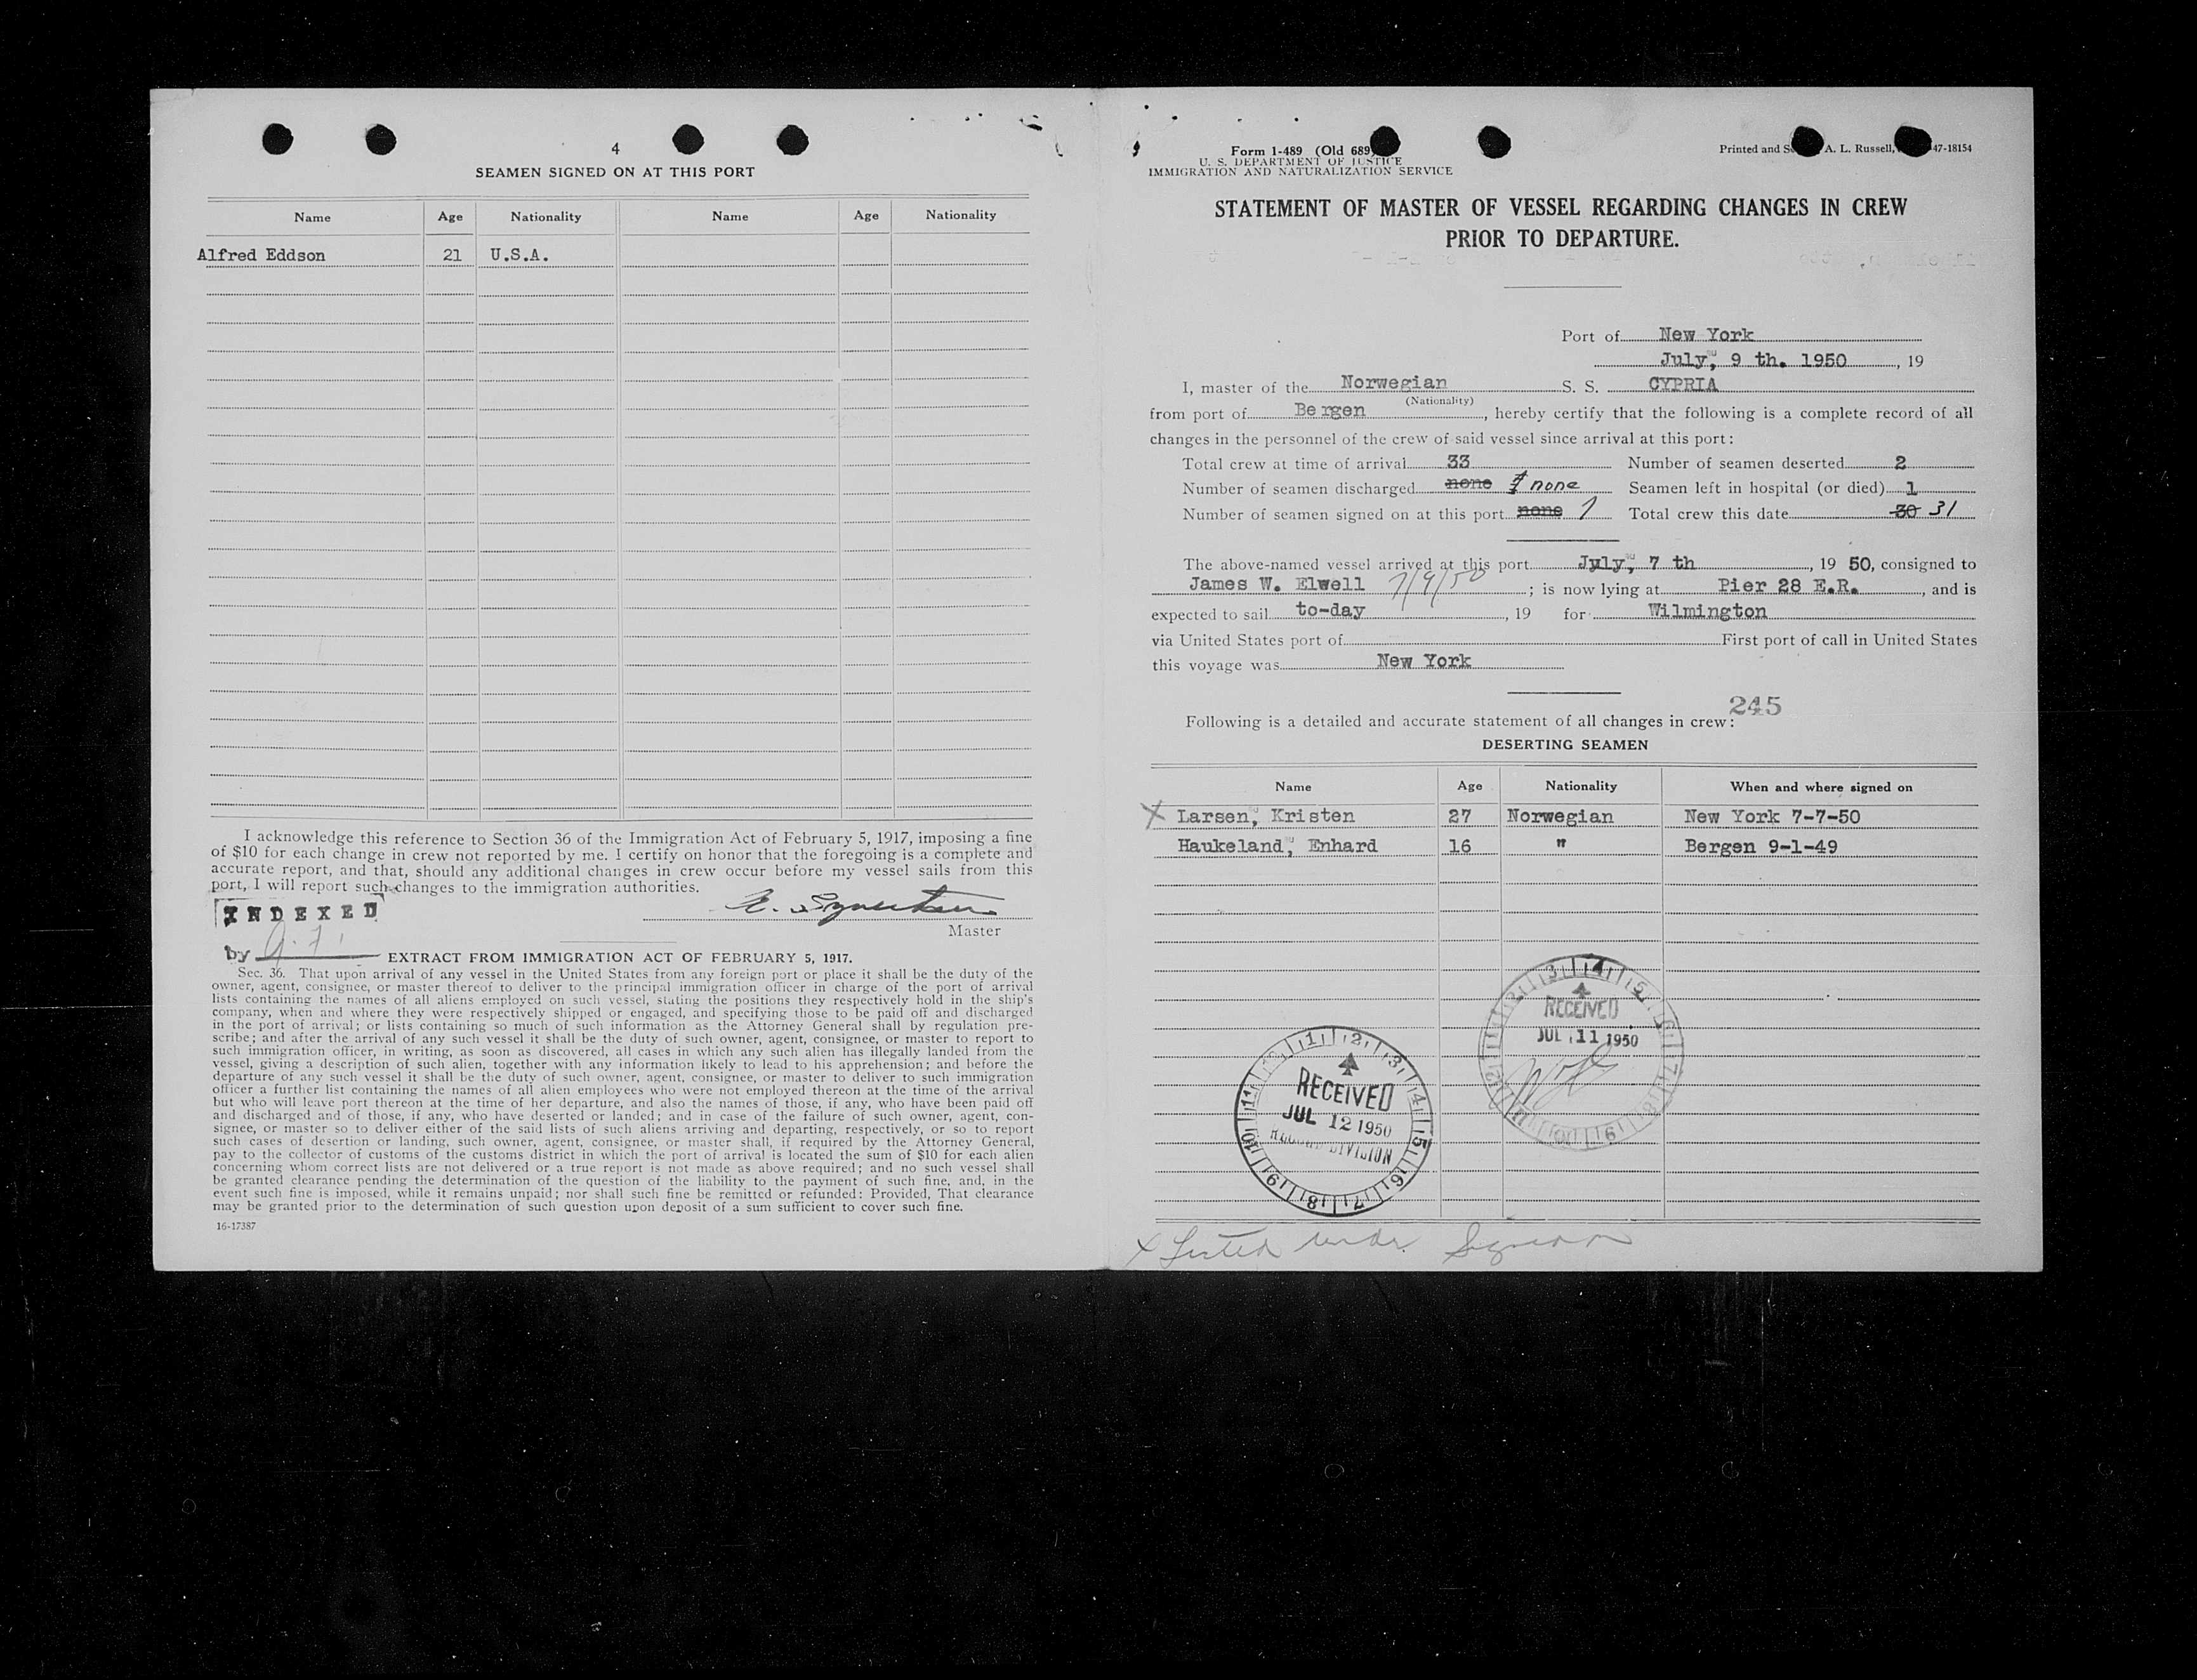 4
SEAMEN SIGNED ON AT THIS PORT
Name Age Nationality Name Age Nationality
Alfred Eddson 21 U.S.A.
I acknowledge this reference to Section 36 of the Immigration Act of February 5, 1917, imposing a fine
of $10 for each change in crew not reported by me. I certify on honor that the foregoing is a complete and
accurate report, and that, should any additional changes in crew occur before my vessel sails from this
port, I will report such changes to the immigration authorities.
INDEXED
Master
by
EXTRACT FROM IMMIGRATION ACT OF FEBRUARY 5, 1917.
Sec. 36. That upon arrival of any vessel in the United States from any foreign port or place it shall be the duty of the
owner, agent, consignee, or master thereof to deliver to the principal immigration officer in charge of the port of arrival
lists containing the names of all aliens employed on such vessel, stating the positions they respectively hold in the ship's
company, when and where they were respectively shipped or engaged, and specifying those to be paid off and discharged
in the port of arrival; or lists containing so much of such information as the Attorney General shall by regulation pre-
scribe; and after the arrival of any such vessel it shall be the duty of such owner, agent, consignee, or master to report to
such immigration officer, in writing, as soon as discovered, all cases in which any such alien has illegally landed from the
vessel, giving a description of such alien, together with any information likely to lead to his apprehension; and before the
departure of any such vessel it shall be the duty of such owner, agent, consignee, or master to deliver to such immigration
officer a further list containing the names of all alien employees who were not employed thereon at the time of the arrival
but who will leave port thereon at the time of her departure, and also the names of those, if any, who have been paid off
and discharged and of those, if any, who have deserted or landed; and in case of the failure of such owner, agent, con-
signee, or master so to deliver either of the said lists of such aliens arriving and departing, respectively, or so to report
such cases of desertion or landing, such owner, agent, consignee, or master shall, if required by the Attorney General,
pay to the collector of customs of the customs district in which the port of arrival is located the sum of $10 for each alien
concerning whom correct lists are not delivered or a true report is not made as above required; and no such vessel shall
be granted clearance pending the determination of the question of the liability to the payment of such fine, and, in the
event such fine is imposed, while it remains unpaid; nor shall such fine be remitted or refunded: Provided, That clearance
may be granted prior to the determination of such question upon deposit of a sum sufficient to cover such fine.
16-17387
Form 1-489 (Old 689
Printed and A. L. Russell, 47-18154
U. S. DEPARTMENT OF JUSTICE
IMMIGRATION AND NATURALIZATION SERVICE
STATEMENT OF MASTER OF VESSEL REGARDING CHANGES IN CREW
PRIOR TO DEPARTURE.
Port of New York
July, 9 th. 1950, 19
I, master of the Norwegian S. S. CYPRIA
(Nationality)
from port of Bergen, hereby certify that the following is a complete record of all
changes in the personnel of the crew of said vessel since arrival at this port:
Total crew at time of arrival 33 Number of seamen deserted 2
Number of seamen discharged none 1 none Seamen left in hospital (or died) 1
Number of seamen signed on at this port none 1 Total crew this date 30 31
The above-named vessel arrived at this port July, 7 th, 19 50, consigned to
James W. Elwell 7/9/50; is now lying at Pier 28 E.R., and is
expected to sail to-day, 19 for Wilmington
via United States port of First port of call in United States
this voyage was New York
245
Following is a detailed and accurate statement of all changes in crew:
DESERTING SEAMEN
Name Age Nationality When and where signed on
X Larsen, Kristen 27 Norwegian New York 7-7-50
Haukeland, Enhard 16 " Bergen 9-1-49
RECEIVED
JUL 11 1950
RECEIVED
JUL 12 1950
RECORD DIVISION
x Listed under